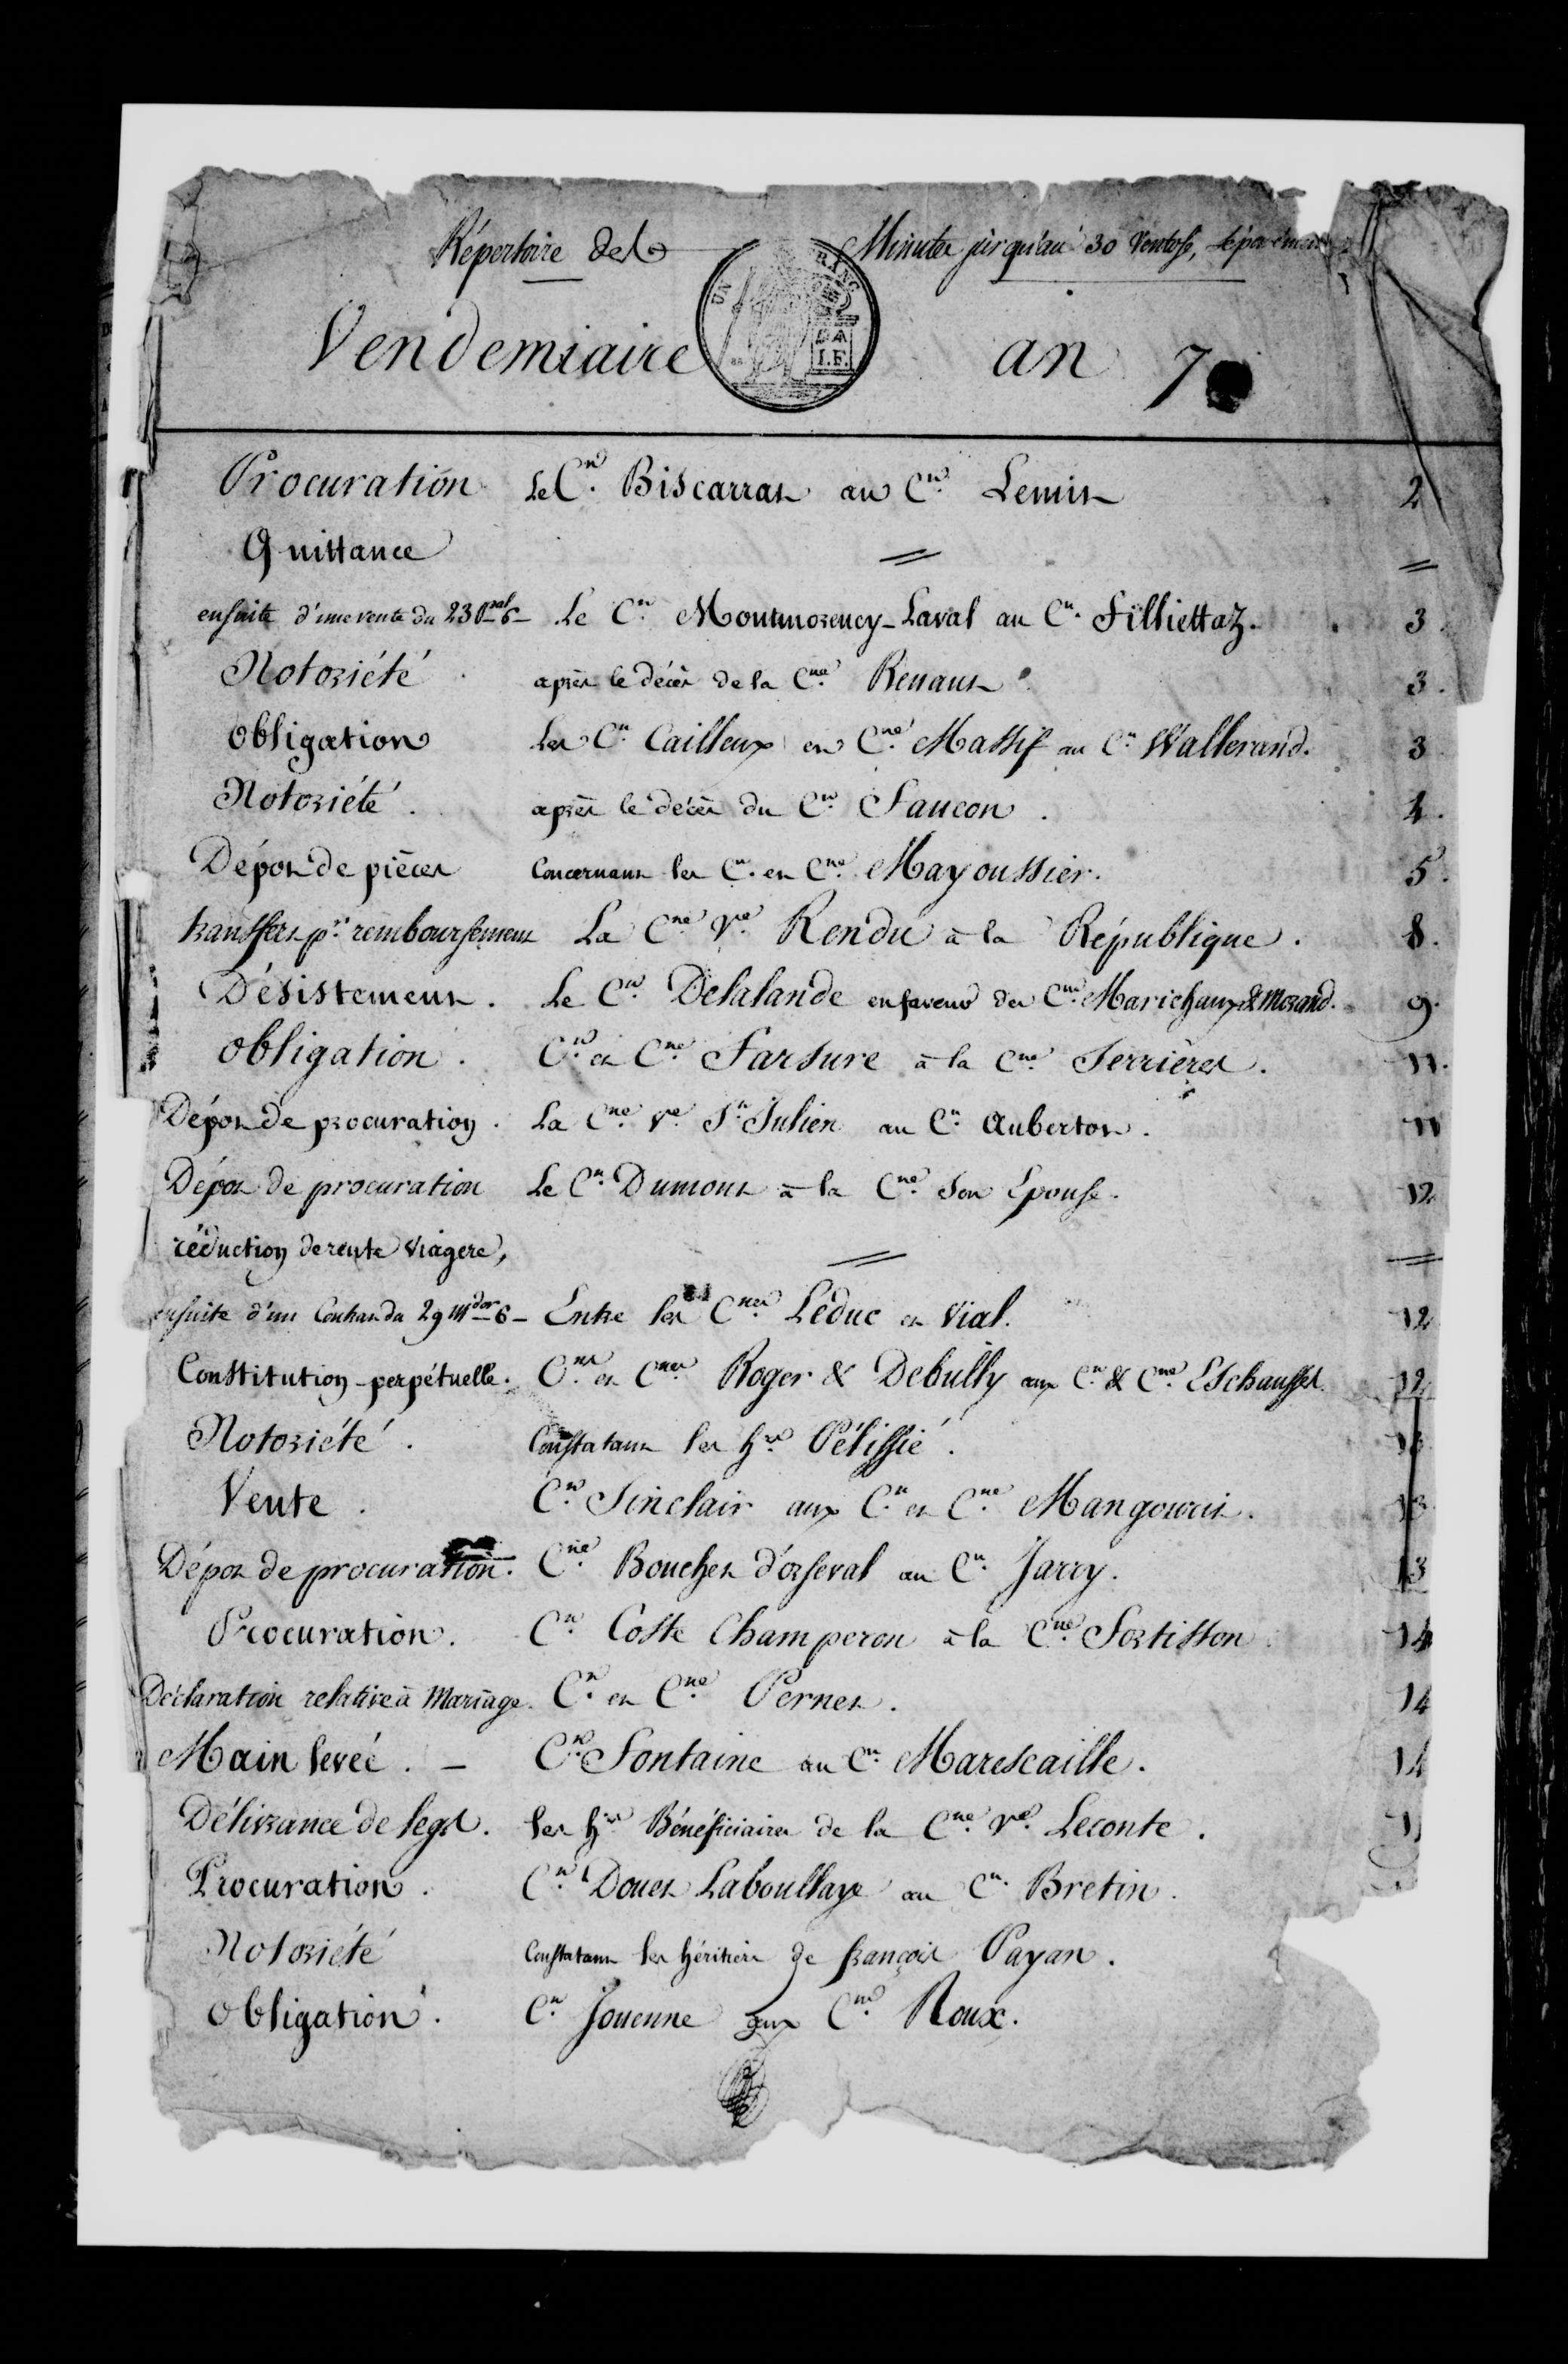 Répertoire des Minutes jusqu'au 30 Ventose,
UN FRANC
I.F.
Vendemiaire an 7
Procuration Le Cn. Biscarrat au Cn. Lemit 2
Quittance =  =
ensuite d'une vente du 23 pral 6 - Le Cn. Montmorency-Laval au Cn. Filliettaz. 3.
Notoriété après le décès de la Cne. Renaut 3.
Obligation Les Cn. Cailleux et Cne. Massif au Cn. Wallerand. 3
Notoriété. après le décès du Cn. Faucon. 4.
Dépot de pièces Concernant les Cn. et Cne. Mayoussier. 5.
transfert pr. remboursement La Cne. Ve. Rendu à la République. 8.
Désistement. Le Cn. Delalande en faveur des Cns. Marichaux & Morand. 9.
Obligation. Cn. et Cne. Farsure à la Cne. Ferrières. 11.
Dépot de procuration. La Cne. Ve. St. Julien au Cn. Aubertot. 11
Dépot de procuration Le Cn. Dumont à la Cne. son Epouse. 12
réduction de rente viagere, =  =
ensuite d'un Contrat du 29 mdor 6 - Entre les Cnes. Leduc et Vial. 12
Constitution-perpétuelle. Cns. et Cnes. Roger & Debully aux Cn. & Cne. Eschausses. 12
Notoriété. Constatant les hrs. Pélissié. 13
Vente. Cn. Sinclair aux Cn. et Cne. Mangourit. 13
Dépot de procuration. Cne. Bouchet d'orseval au Cn. Jarry. 13
Procuration. Cn. Coste Champeron à la Cne. Sortisson 14
Déclaration relative à Mariage. Cn. et Cne. Pernet. 14
Main levée. - Cn. Fontaine au Cn. Marescaille. 14
Délivrance de legs. les hrs. Bénéficiaires de la Cne. Ve. Leconte.
Procuration. Cn. Douet Laboullaye au Cn. Bretin.
Notoriété Constatant les héritiers de françois Payan.
Obligation. Cn. Jouenne aux Cns. Roux.